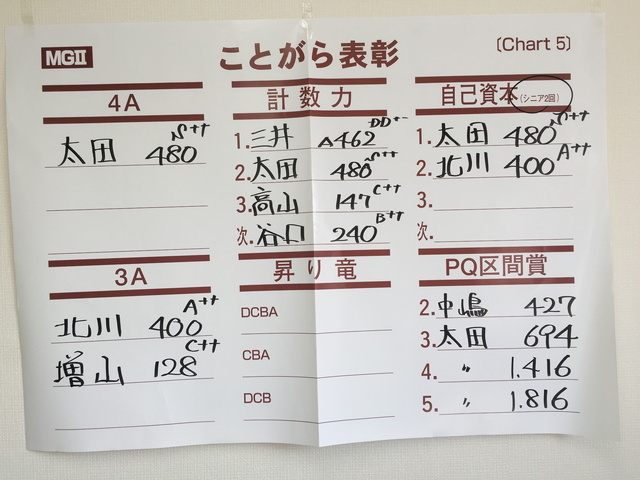 MGⅡ
ことがら表彰
〔Chart 5〕
4A
太田 480 S++
3A
北川 400 A++
増山 128 C++
計数力
1. 三井 △462 DD+-
2. 太田 480 S++
3. 高山 147 C++
次. 谷口 240 B++
昇り竜
DCBA
CBA
DCB
自己資本(シニア2回)
1. 太田 480 S++
2. 北川 400 A++
3.
次.
PQ区間賞
2. 中嶋 427
3. 太田 694
4. 〃 1.416
5. 〃 1.816